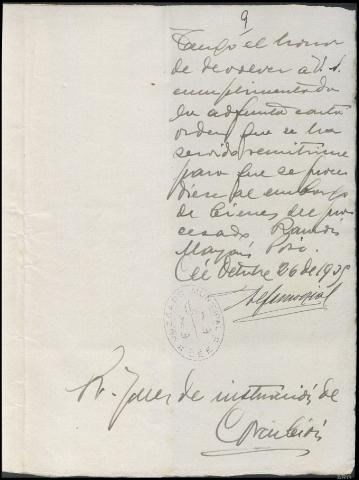 9
Tengo el honor
de devolver á V. S.
cumplimentada
la adjunta carta
orden que se ha
servido remitirme
para que se proce
diese al embargo
de bienes del pro
cesado Ramón
Mayán
Cée Octubre 26 de 19
JUZGADO MUNICIPAL
CEE
Sr. Juez de instrucción de
Corcubión